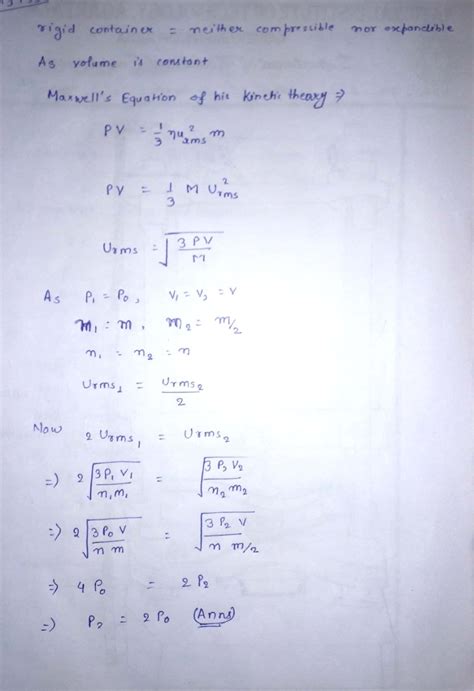 rigid container = neither compressible nor expandible
As volume is constant
Maxwell's Equation of his Kinetic theory ⇒
PV = 1/3 n u²rms m
PV = 1/3 M U²rms
Urms = √(3PV/M)
As P₁ = P₀, V₁ = V₂ = V
m₁ = m, m₂ = m/2
n₁ = n₂ = n
Urms₁ = Urms₂/2
Now 2 Urms₁ = Urms₂
=) 2 √(3P₁V₁/n₁m₁) = √(3P₂V₂/n₂m₂)
=) 2 √(3P₀V/n m) = √(3P₂V/n m/2)
=) 4 P₀ = 2 P₂
=) P₂ = 2 P₀ (Ans)